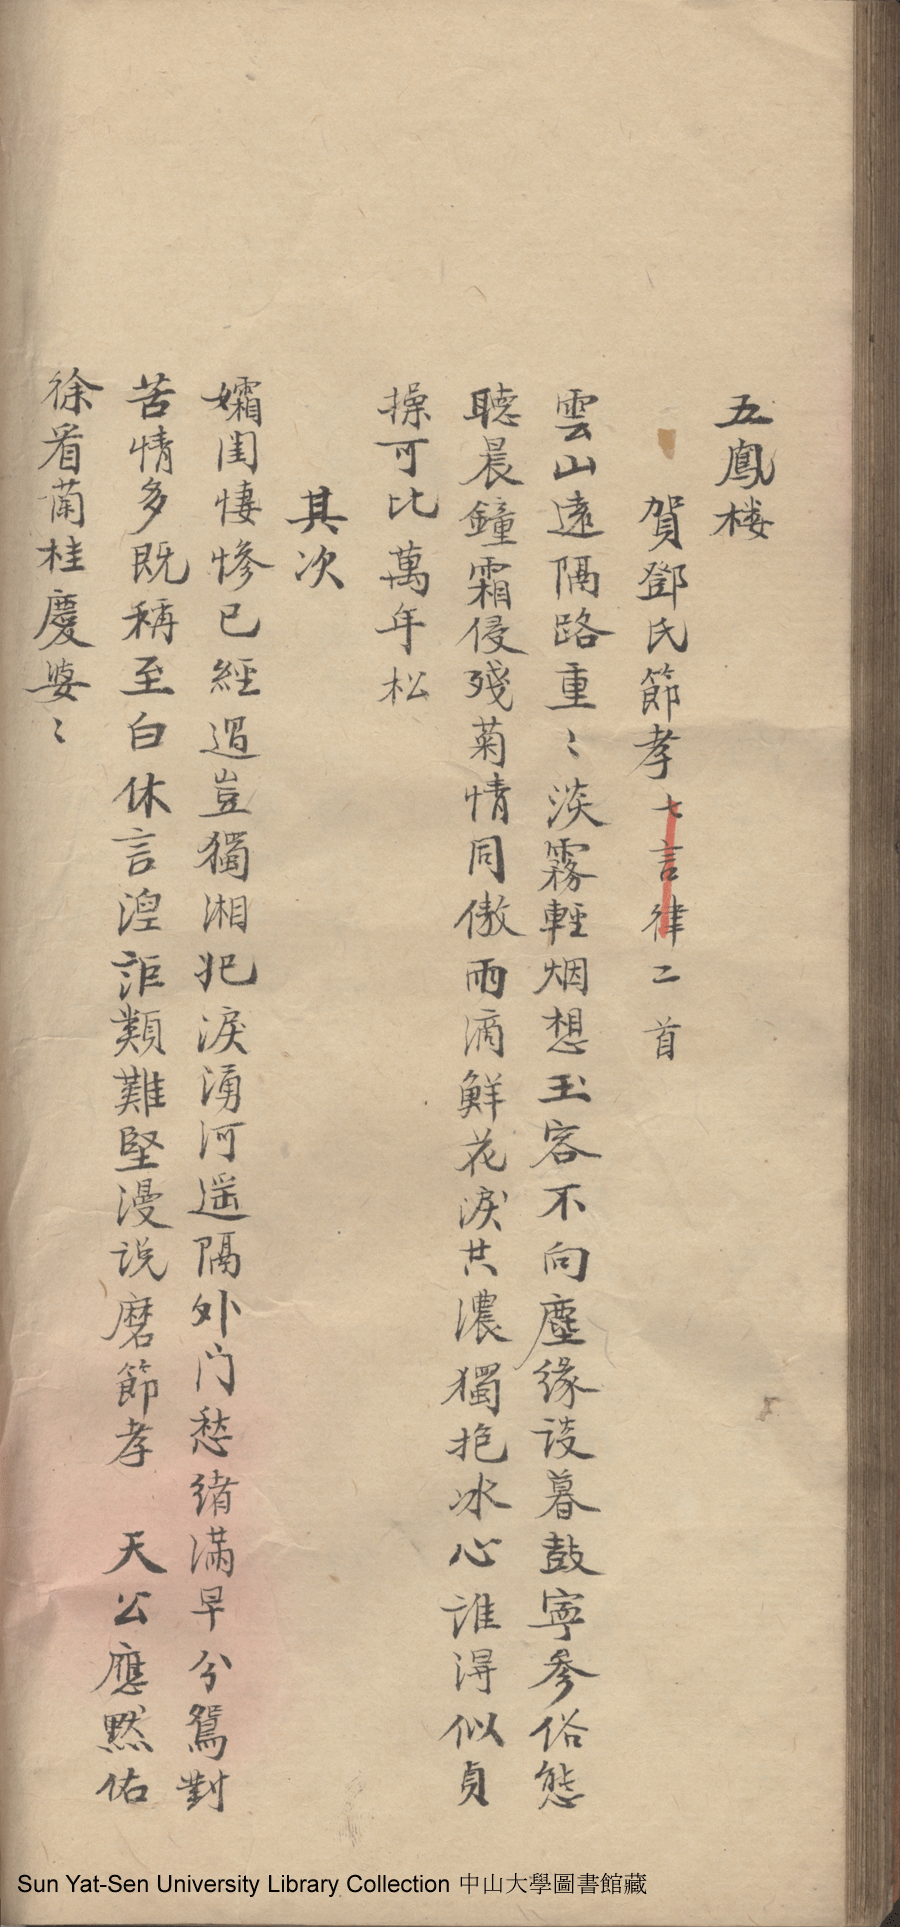 五鳳楼
賀鄧氏節孝七言律二首
雲山遠隔路重〻淡霧輕烟想玉容不向塵缘談暮鼓寧參俗態
聽晨鐘霜侵殘菊情同傲雨滴鮮花淚共濃獨抱冰心誰得似貞
操可比萬年松
其次
孀闺悽慘已經過豈獨湘妃淚湧河遥隔外门愁緒滿早分鴛對
苦情多既稱至白休言湼詎類難堅漫说磨節孝　天公應黙佑
徐看蘭桂慶婆〻
Sun Yat-Sen University Library Collection 中山大學圖書館藏